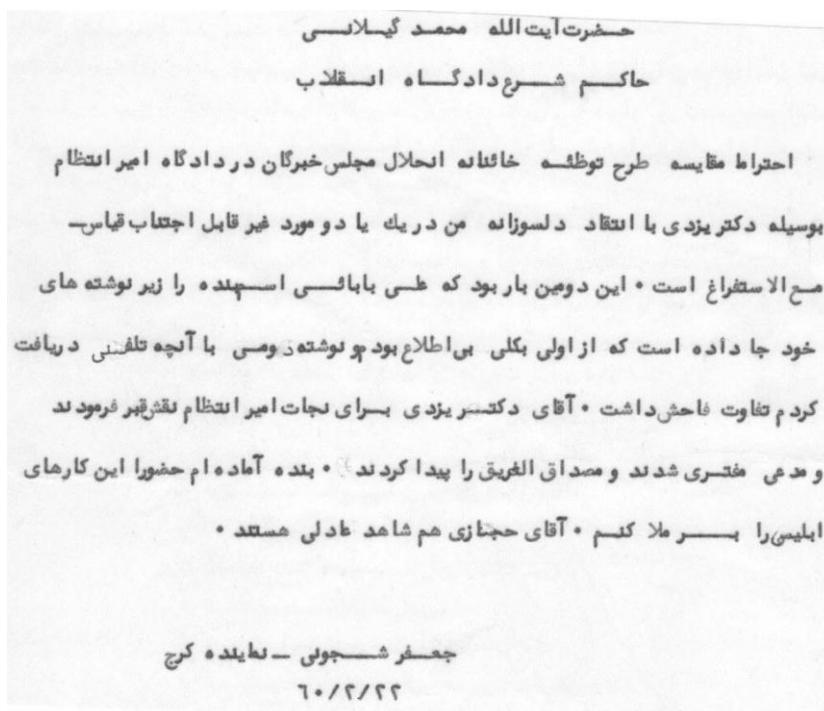 حضرت آیت الله محمد گیلانی
حاکم شرع دادگاه انقلاب
احتراما مقایسه طرح توطئه خائنانه انحلال مجلس خبرگان در دادگاه امیر انتظام
بوسیله دکتر یزدی با انتقاد دلسوزانه من در یك یا دو مورد غیر قابل اجتناب قیاس
مع الاستفراغ است • این دومین بار بود که علی بابائی اسم بنده را زیر نوشته های
خود جا داده است که از اولی بکلی بی اطلاع بودم و نوشته دومی با آنچه تلفنی دریافت
کردم تفاوت فاحش داشت • آقای دکتر یزدی برای نجات امیر انتظام نقش قبر فرمودند
و مدعی مفتری شدند و مصداق الغریق را پیدا کردند • بنده آماده ام حضورا این کارهای
ابلیسی را بر ملا کنم • آقای حجازی هم شاهد عادلی هستند •
جعفر شجونی ـ نماینده کرج
۶۰/۲/۲۲